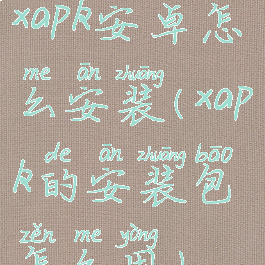 xapk安卓怎
me ān zhuāng
么安装(xap
de ān zhuāng bāo
k的安装包
zěn me yòng
怎么用)